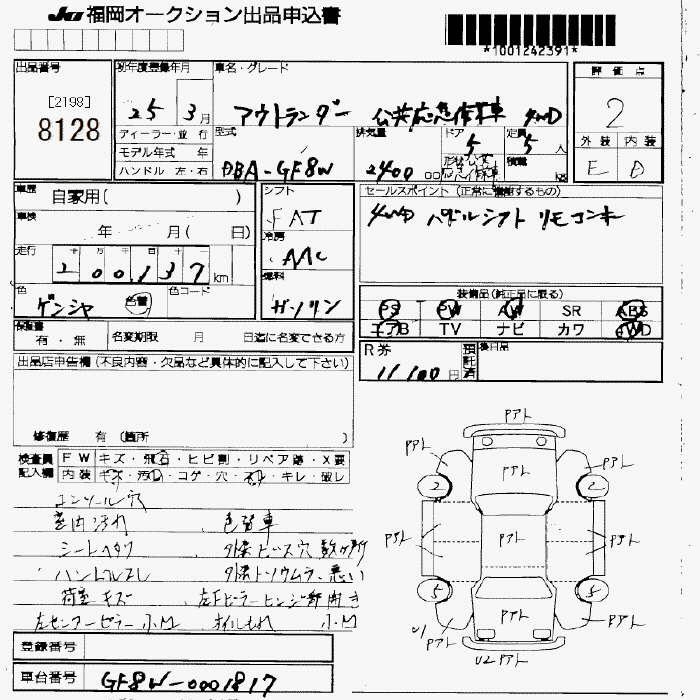 JU福岡オークション出品申込書
*1001242391*
出品番号
[2198]
8128
初年度登録年月
25 3月
車名・グレード
アウトランダー 公共応急作業車 4WD
評価点
2
外装 内装
E D
ディーラー・並行
モデル年式 年
ハンドル 左・右
型式
DBA-GF8W
排気量
2400
ドア
5
定員
5人
積載
車歴
自家用( )
車検
年 月( 日)
走行
200137km
色
ゲンシャ
色替
色コード
シフト
FAT
冷房
AAC
燃料
ガソリン
セールスポイント(正常に機能するもの)
4WD パドルシフト リモコンキー
装備品(純正品に限る)
PS PW AW SR ABS
エアB TV ナビ カワ 4WD
保証書
有・無
名変期限 月 日迄に名変できる方
R券
11100円
預託済
後日品
出品店申告欄(不良内容・欠品など具体的に記入して下さい)
修復歴 有(箇所 )
検査員記入欄
FW キズ・飛石・ヒビ割・リペア跡・X要
内装 キズ・汚れ・コゲ・穴・スレ・キレ・破レ
コンソール穴
室内汚れ 、色替車
シートヘタリ 、外装ビス穴数ヶ所
ハンドルスレ 、外装トソウムラ、悪い
荷室キズ 、左Fピラーヒンジ部開き
左センターピラー小M 、オイルもれ 小M
登録番号
車台番号
GF8W-0001817
PアトL
PアトL
PアトL
PアトL
2
2
PアトL
PアトL
PアトL
PアトL
5
5
U1
PアトL
PアトL
U2 PアトL